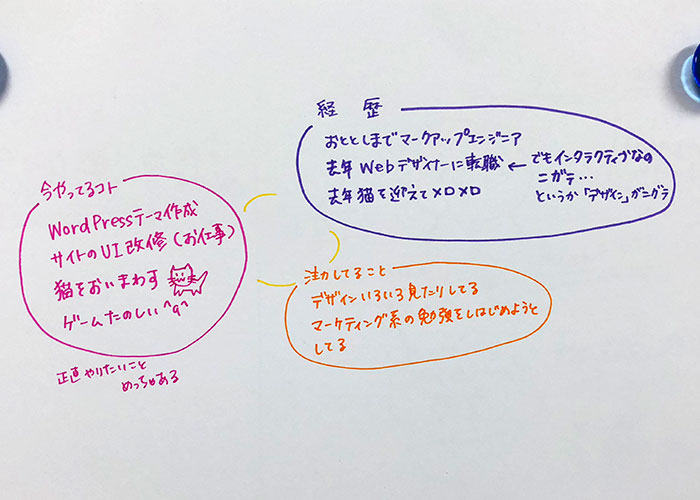 経歴
おととしまでマークアップエンジニア
去年Webデザイナーに転職 ← でもインタラクティブなの
ニガテ...
というか「デザイン」がニガテ
去年猫を迎えてメロメロ
今やってるコト
WordPressテーマ作成
サイトのUI改修(お仕事)
猫をおいまわす
ゲームたのしい^q^
正直やりたいこと
めっちゃある
注力してること
デザインいろいろ見たりしてる
マーケティング系の勉強をしはじめようと
してる